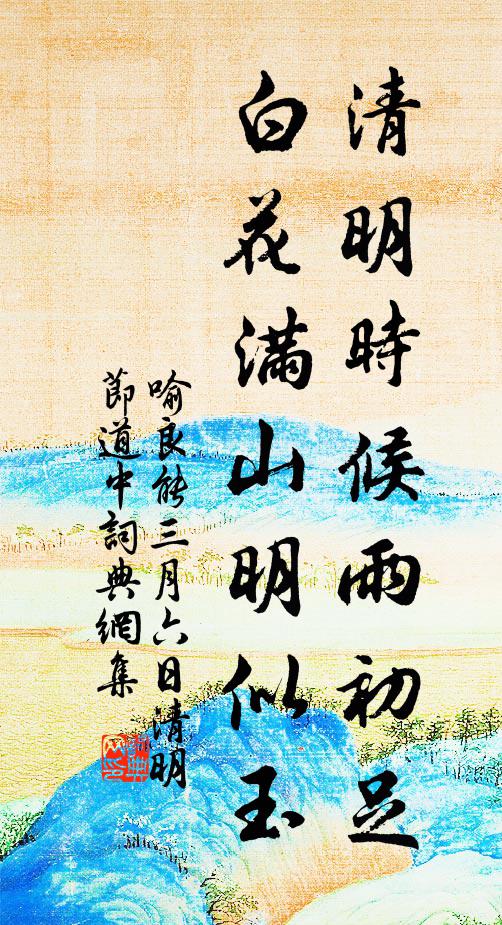 清明時候雨初足
白花滿山明似玉
喻良能三月六日清明
節道中詞典網集